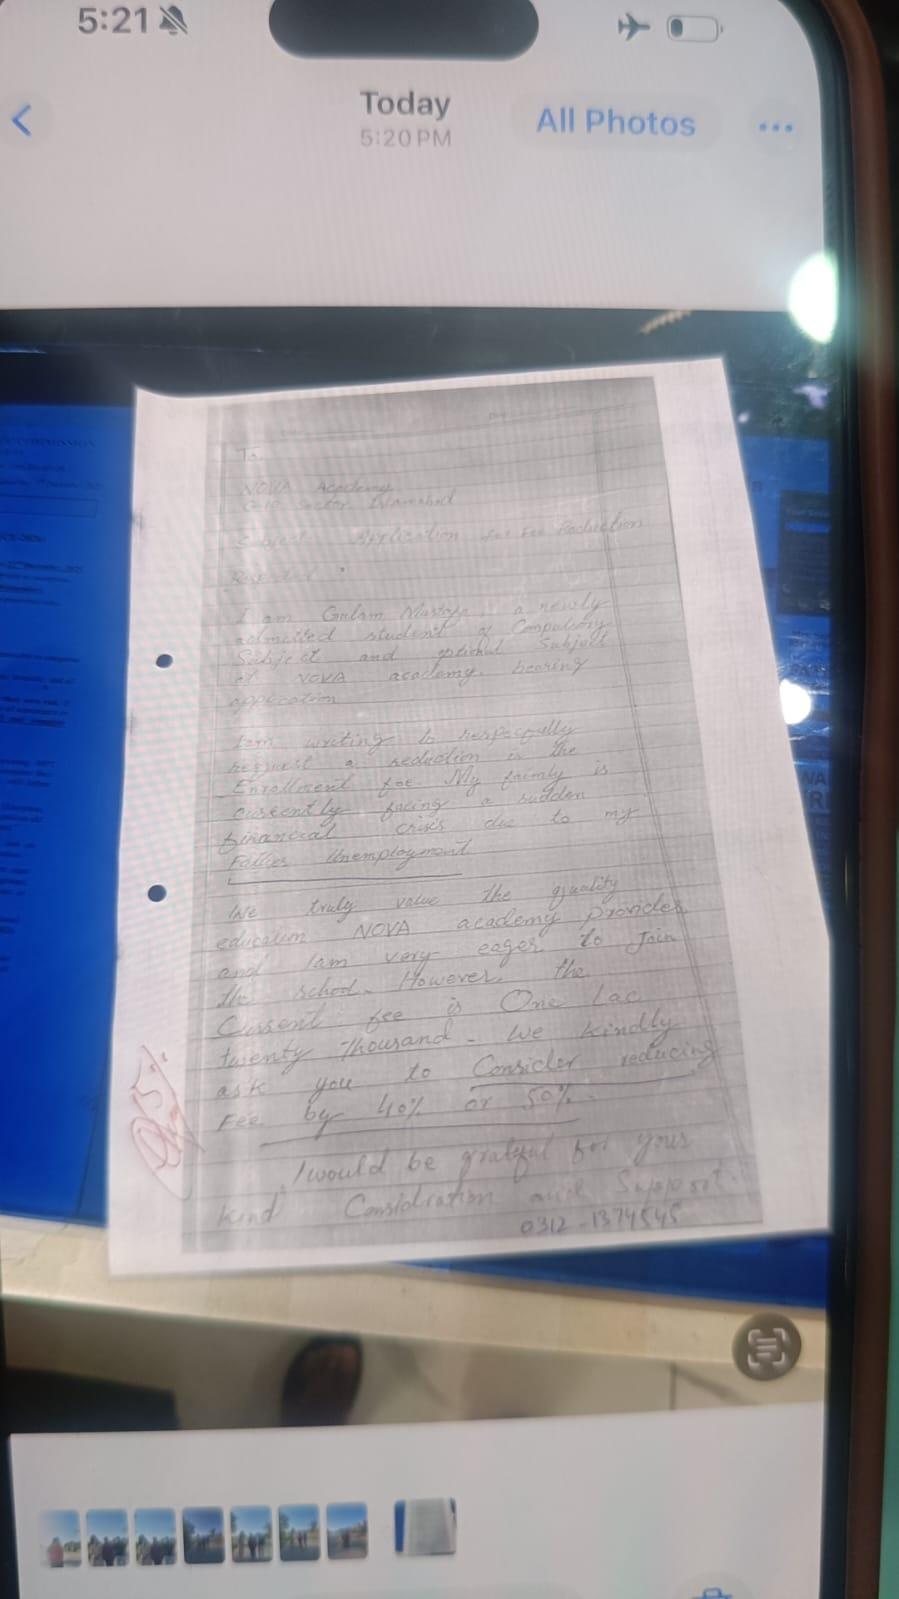 5:21
Today
5:20 PM
All Photos
To
NOVA Academy
Sector Islamabad
Subject Application for Fee Reduction
I am Gulam Mustafa, a newly
admitted student of Compulsory
Subject and optional Subject
at NOVA academy. bearing
application
I am writing to respecfully
request a reduction in the
Enrollment fee. My faimly is
currently facing a sudden
financial crisis due to my
Father Unemployment.
We truly value the quality
education NOVA academy provides
and I am very eager to Join
the school. However, the
Current fee is One Lac
twenty Thousand. We kindly
ask you to Consider reducing
Fee by 40% or 50%.
I would be grateful for your
kind Considration and Support.
0312-1374545